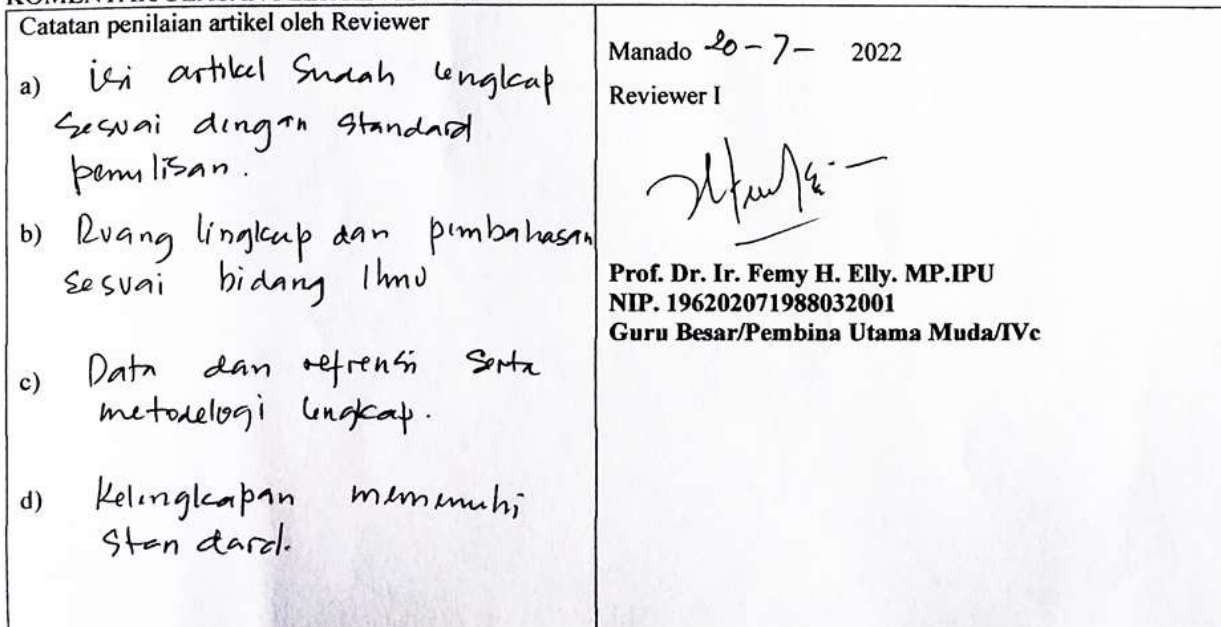 Catatan penilaian artikel oleh Reviewer
a) isi artikel Sudah lengkap
sesuai dengan standard
penulisan.
b) Ruang lingkup dan pembahasan
sesuai bidang Ilmu
c) Data dan refrensi serta
metodelogi lengkap.
d) Kelengkapan memenuhi
standard.
Manado 20-7- 2022
Reviewer I
Prof. Dr. Ir. Femy H. Elly. MP.IPU
NIP. 196202071988032001
Guru Besar/Pembina Utama Muda/IVc